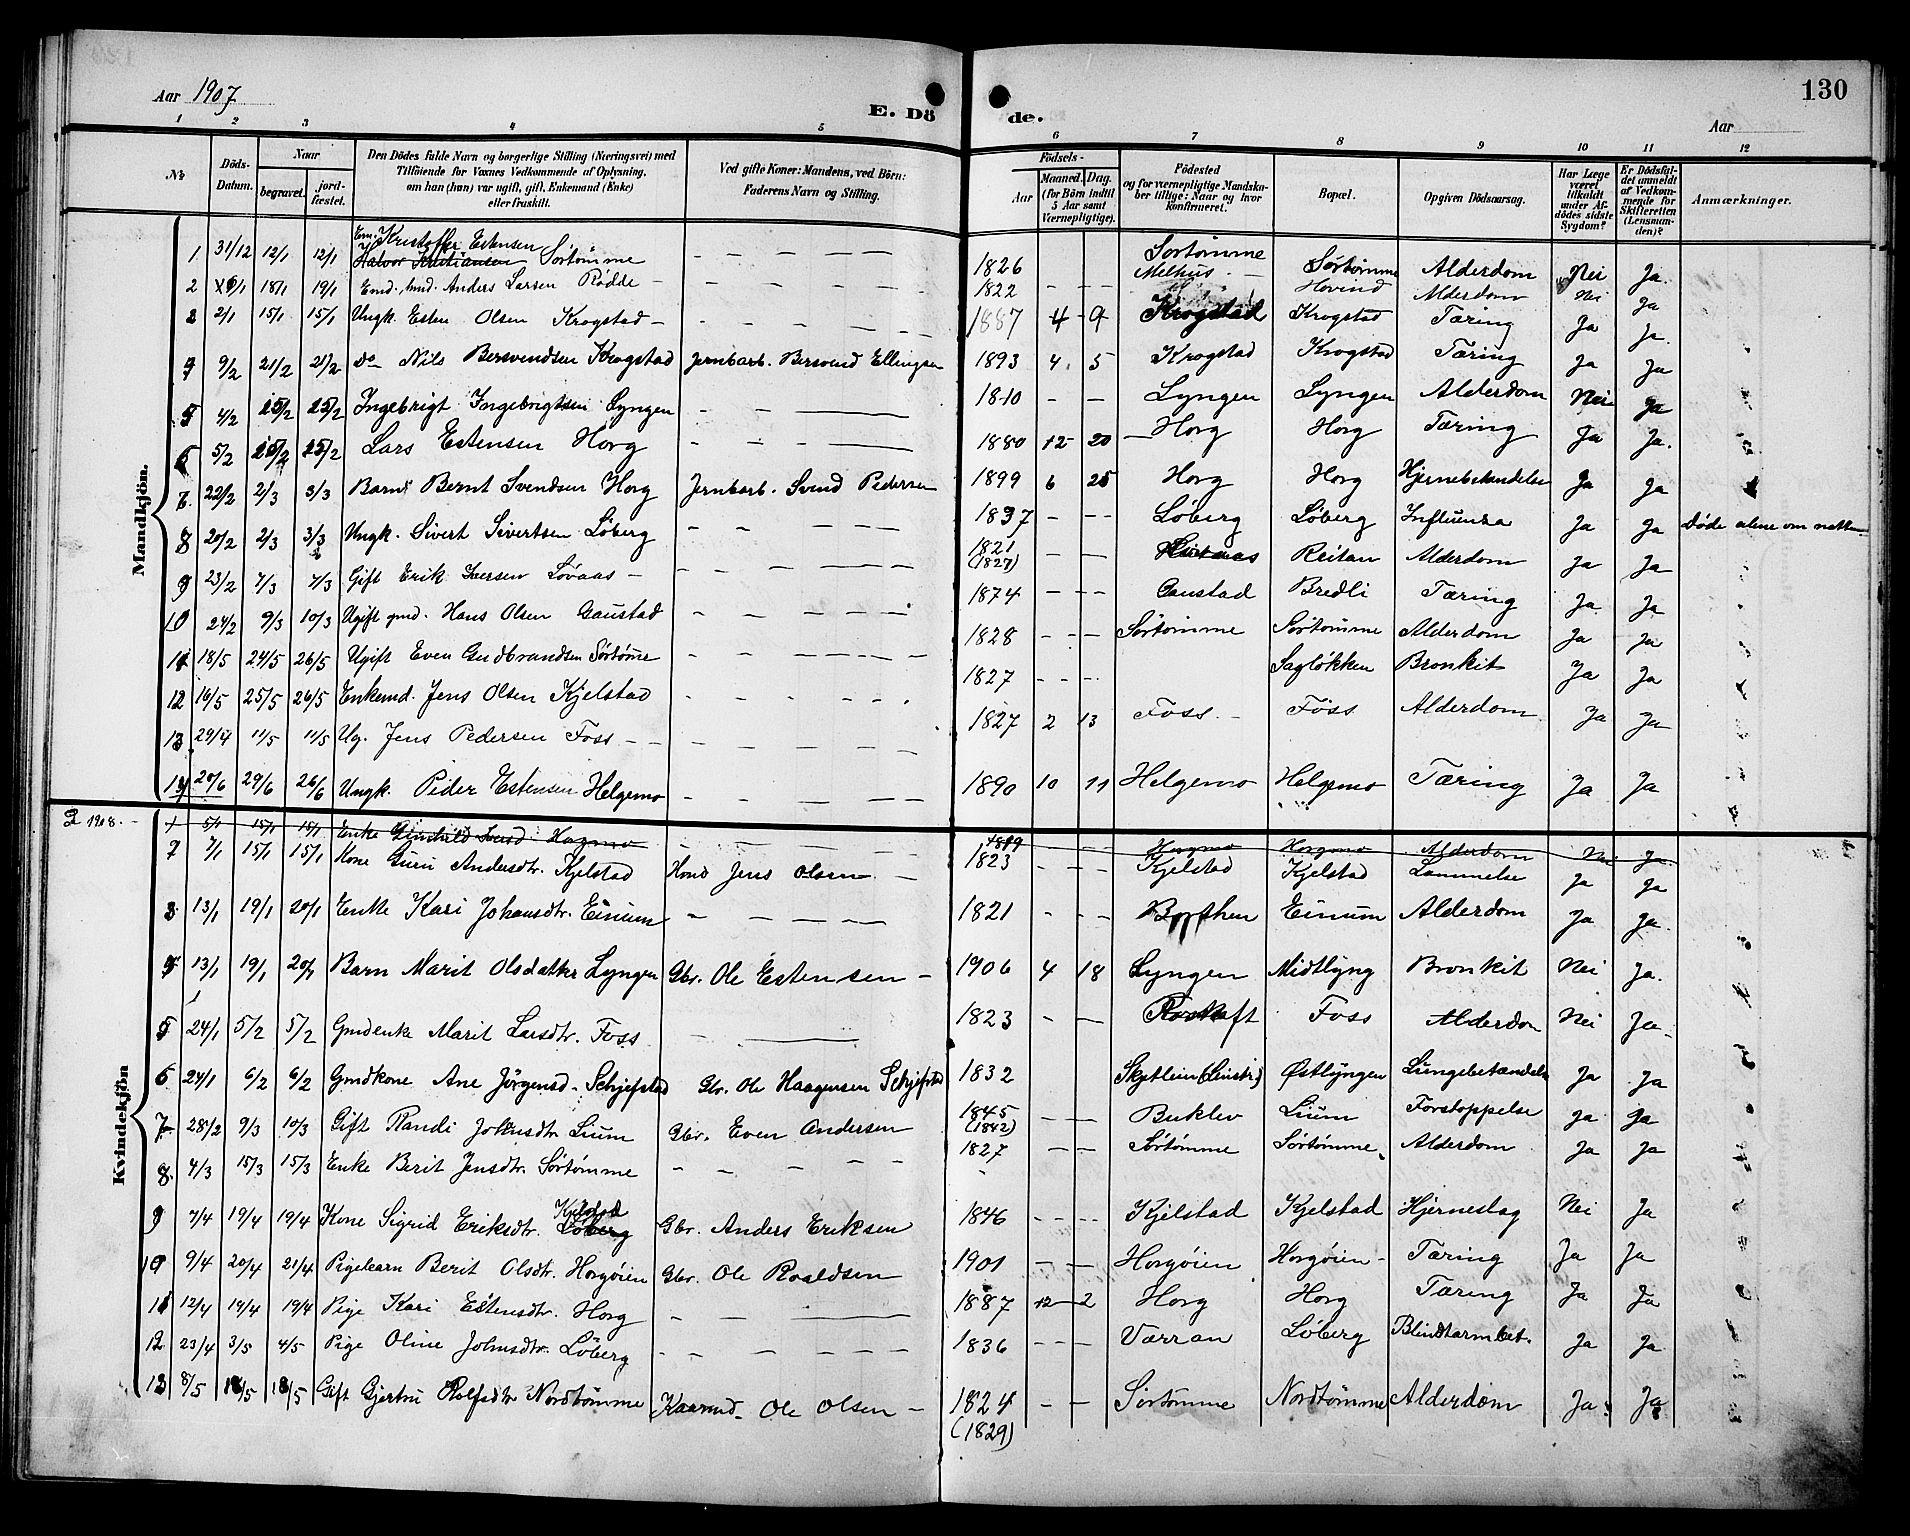 130
Aar 1907
E. Dö
de.
Aar
1 2 3 4 5 6 7 8 9 10 11 12
No Döds-Datum. Naar begravet. jord-fæstet. Den Dödes fulde Navn og borgerlige Stilling (Næringsvei) med Tilföiende for Voxnes Vedkommende af Oplysning, om han (hun) var ugift, gift, Enkemand (Enke) eller fraskilt. Ved gifte Koner: Mandens, ved Börn: Faderens Navn og Stilling. Födsels- Aar Maaned. Dag. (for Börn indtil 5 Aar samt Værnepligtige). Födested og for værnepligtige Mandskaber tillige: Naar og hvor konfirmeret. Bopæl. Opgiven Dödsaarsag. Har Læge været tilkaldt under Afdödes sidste Sygdom? Er Dödsfaldet anmeldt af Vedkommende for Skifteretten (Lensmanden)? Anmærkninger.
Mandkjön.
1 31/12 12/1 12/1 Em. Kristoffer Estensen Halvor Kristiansen Sørtømme — 1826 Sørtømme Sørtømme Alderdom Nei Ja.
2 18/1 19/1 Anders Larsen Rødde — 1822 — — Melhus — Hovind Alderdom Nei Ja
3 2/1 15/1 15/1 Ungk. Esten Olsen Krogstad — 1887 4 9 Krogstad Krogstad Tæring Ja Ja.
4 9/2 21/2 21/2 Do Nils Bersvendsen Krogstad Jernbarb. Bersvend Ellingsen 1893 4 5 Krogstad Krogstad Tæring Ja Ja
5 4/2 25/2 25/2 Ingebrigt Ingebrigtsen Lyngen — 1810 — — Lyngen Lyngen Alderdom Nei Ja
6 5/2 25/2 25/2 Lars Estensen Horg — 1880 12 20 Horg Horg Tæring Ja Ja.
7 22/2 2/3 3/3 Barn Bernt Svendsen Horg Jernbarb. Svend Pedersen 1899 6 25 Horg Horg Hjernebetændelse Ja Ja
8 20/2 2/3 3/3 Ungk. Sivert Sivertsen Løberg — 1837 — — Løberg Løberg Influenza Ja Ja Døde alene om natten
9 23/2 7/3 7/3 Gift Erik Iversen Løvaas — 1821 (1827) — — Reitan Alderdom Ja Ja
10 24/2 9/3 10/3 Ugift gmd. Hans Olsen Gaustad — 1874 — — Gaustad Bredli Tæring Ja Ja
11 18/5 24/5 26/5 Ugift Even Gudbrandsen Sørtømme — 1828 — — Sørtømme Sørtømme Alderdom Ja Ja
12 16/5 25/5 26/5 Enkemd. Jens Olsen Kjelstad — 1827 — — Sagløkken Bronkit Ja Ja
13 29/4 11/5 11/5 Ug. Jens Pedersen Foss — 1827 2 13 Foss — Foss Alderdom Ja Ja
14 20/6 29/6 26/6 Ungk. Peder Estensen Helgemo — 1890 10 11 Helgemo Helgemo Tæring Ja Ja
Kvindekjön
1908. — 1 5/1 15/1 15/1 Enke Gunhild Iversd Hagmo — 1819 Horgmo Horgmo Alderdom Nei Ja
7/1 15/1 15/1 Kone Guru Andersdtr. Kjelstad Jens Olsen — 1823 — — Kjelstad Kjelstad Lammelse Ja Ja
3 13/1 19/1 20/1 Enke Kari Johansdtr. Einum — 1821 — — Borthen Einum Alderdom Ja Ja.
4 13/1 19/1 20/1 Barn Marit Olsdatter Lyngen Gbr. Ole Estensen — 1906 4 18 Lyngen Midtlyng Bronkit Nei Ja.
5 24/1 5/2 5/2 Gmdenke Marit Larsdtr. Foss — 1823 — — Foss Alderdom Nei Ja.
6 24/1 6/2 6/2 Gmdkone Ane Jörgensd. Schjefstad Gbr. Ole Haagensen Schjefstad 1832 Østlyngen Lungebetændelse Ja Ja
7 28/2 9/3 10/3 Gift Randi Johnsdtr Lium Gbr. Even Andersen 1845 (1842) — — Buklev Lium Forstoppelse Ja Ja
8. 4/3 15/3 15/3 Enke Berit Jensdtr. Sørtømme — 1827 — — Sørtømme Sørtømme Alderdom Ja Ja
9 7/4 19/4 19/4 Kone Sigrid Eriksdtr. Kjelstad Løberg Gbr. Anders Eriksen 1846 — — Kjelstad Kjelstad Hjerneslag Nei Ja
10 9/4 20/4 21/4 Pigebarn Berit Olsdtr. Horgøien Gbr. Ole Roaldsen 1901 — — Horgøien Horgøien — Tæring Ja Ja
11 12/4 19/4 19/4 Pige Kari Estensdtr. Horg — 1887 12 2 Horg Horg Tæring Ja Ja
12 23/4 3/5 4/5 Pige Oline Johnsdtr. Løberg — 1836 — — Værran Løberg Blindtarmbet. Ja Ja
13 8/5 18/5 18/5 Gift Gjertru Rolfsdtr Nordtømme Kaarmd. Ole Olsen — 1824 (1829) — — Sørtømme Nordtømme Alderdom Ja. Ja